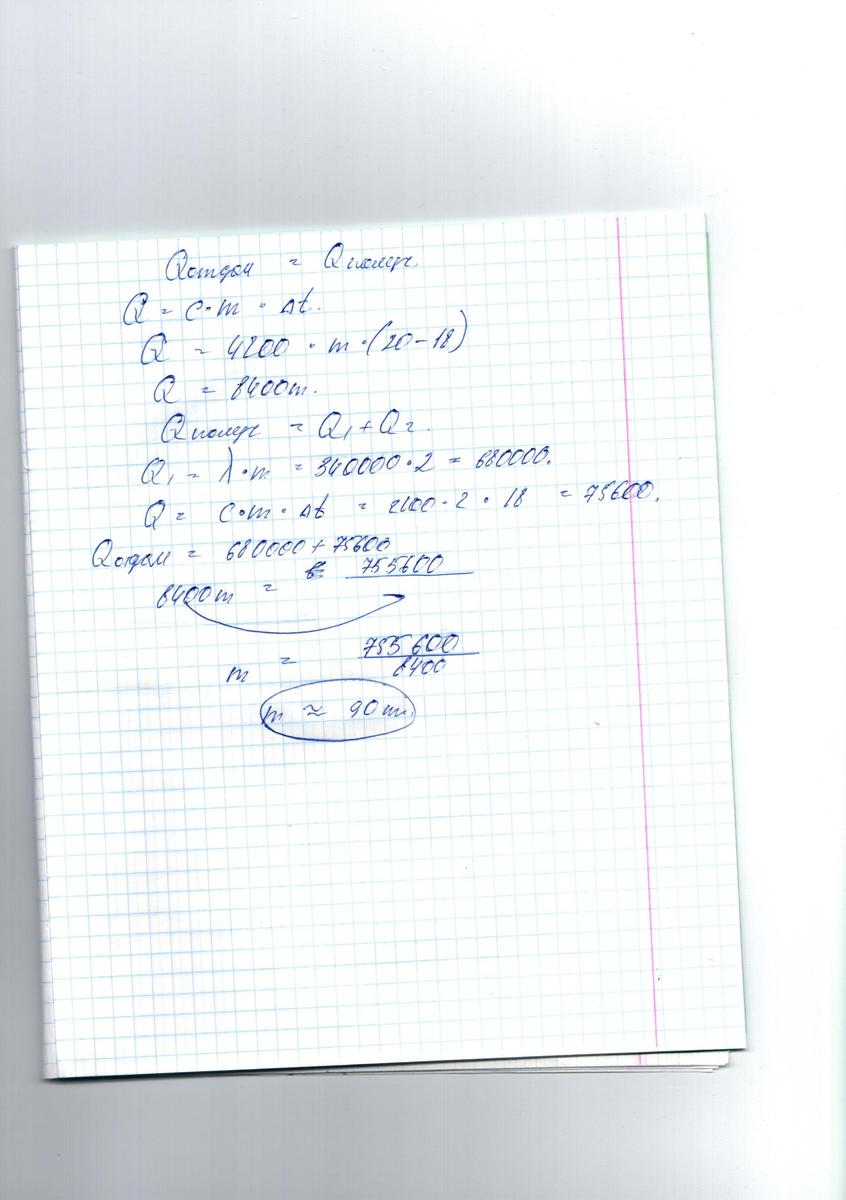 Qотдан = Qполуч.
Q = c·m · Δt.
Q = 4200 · m·(20-18)
Q = 8400m.
Qполуч = Q₁+Q₂.
Q₁ = λ·m = 340000·2 = 680000.
Q = c·m·Δt = 2100·2·18 = 75600.
Qотдан = 680000+75600
8400m = 755600
m = 755600
8400
m ≈ 90